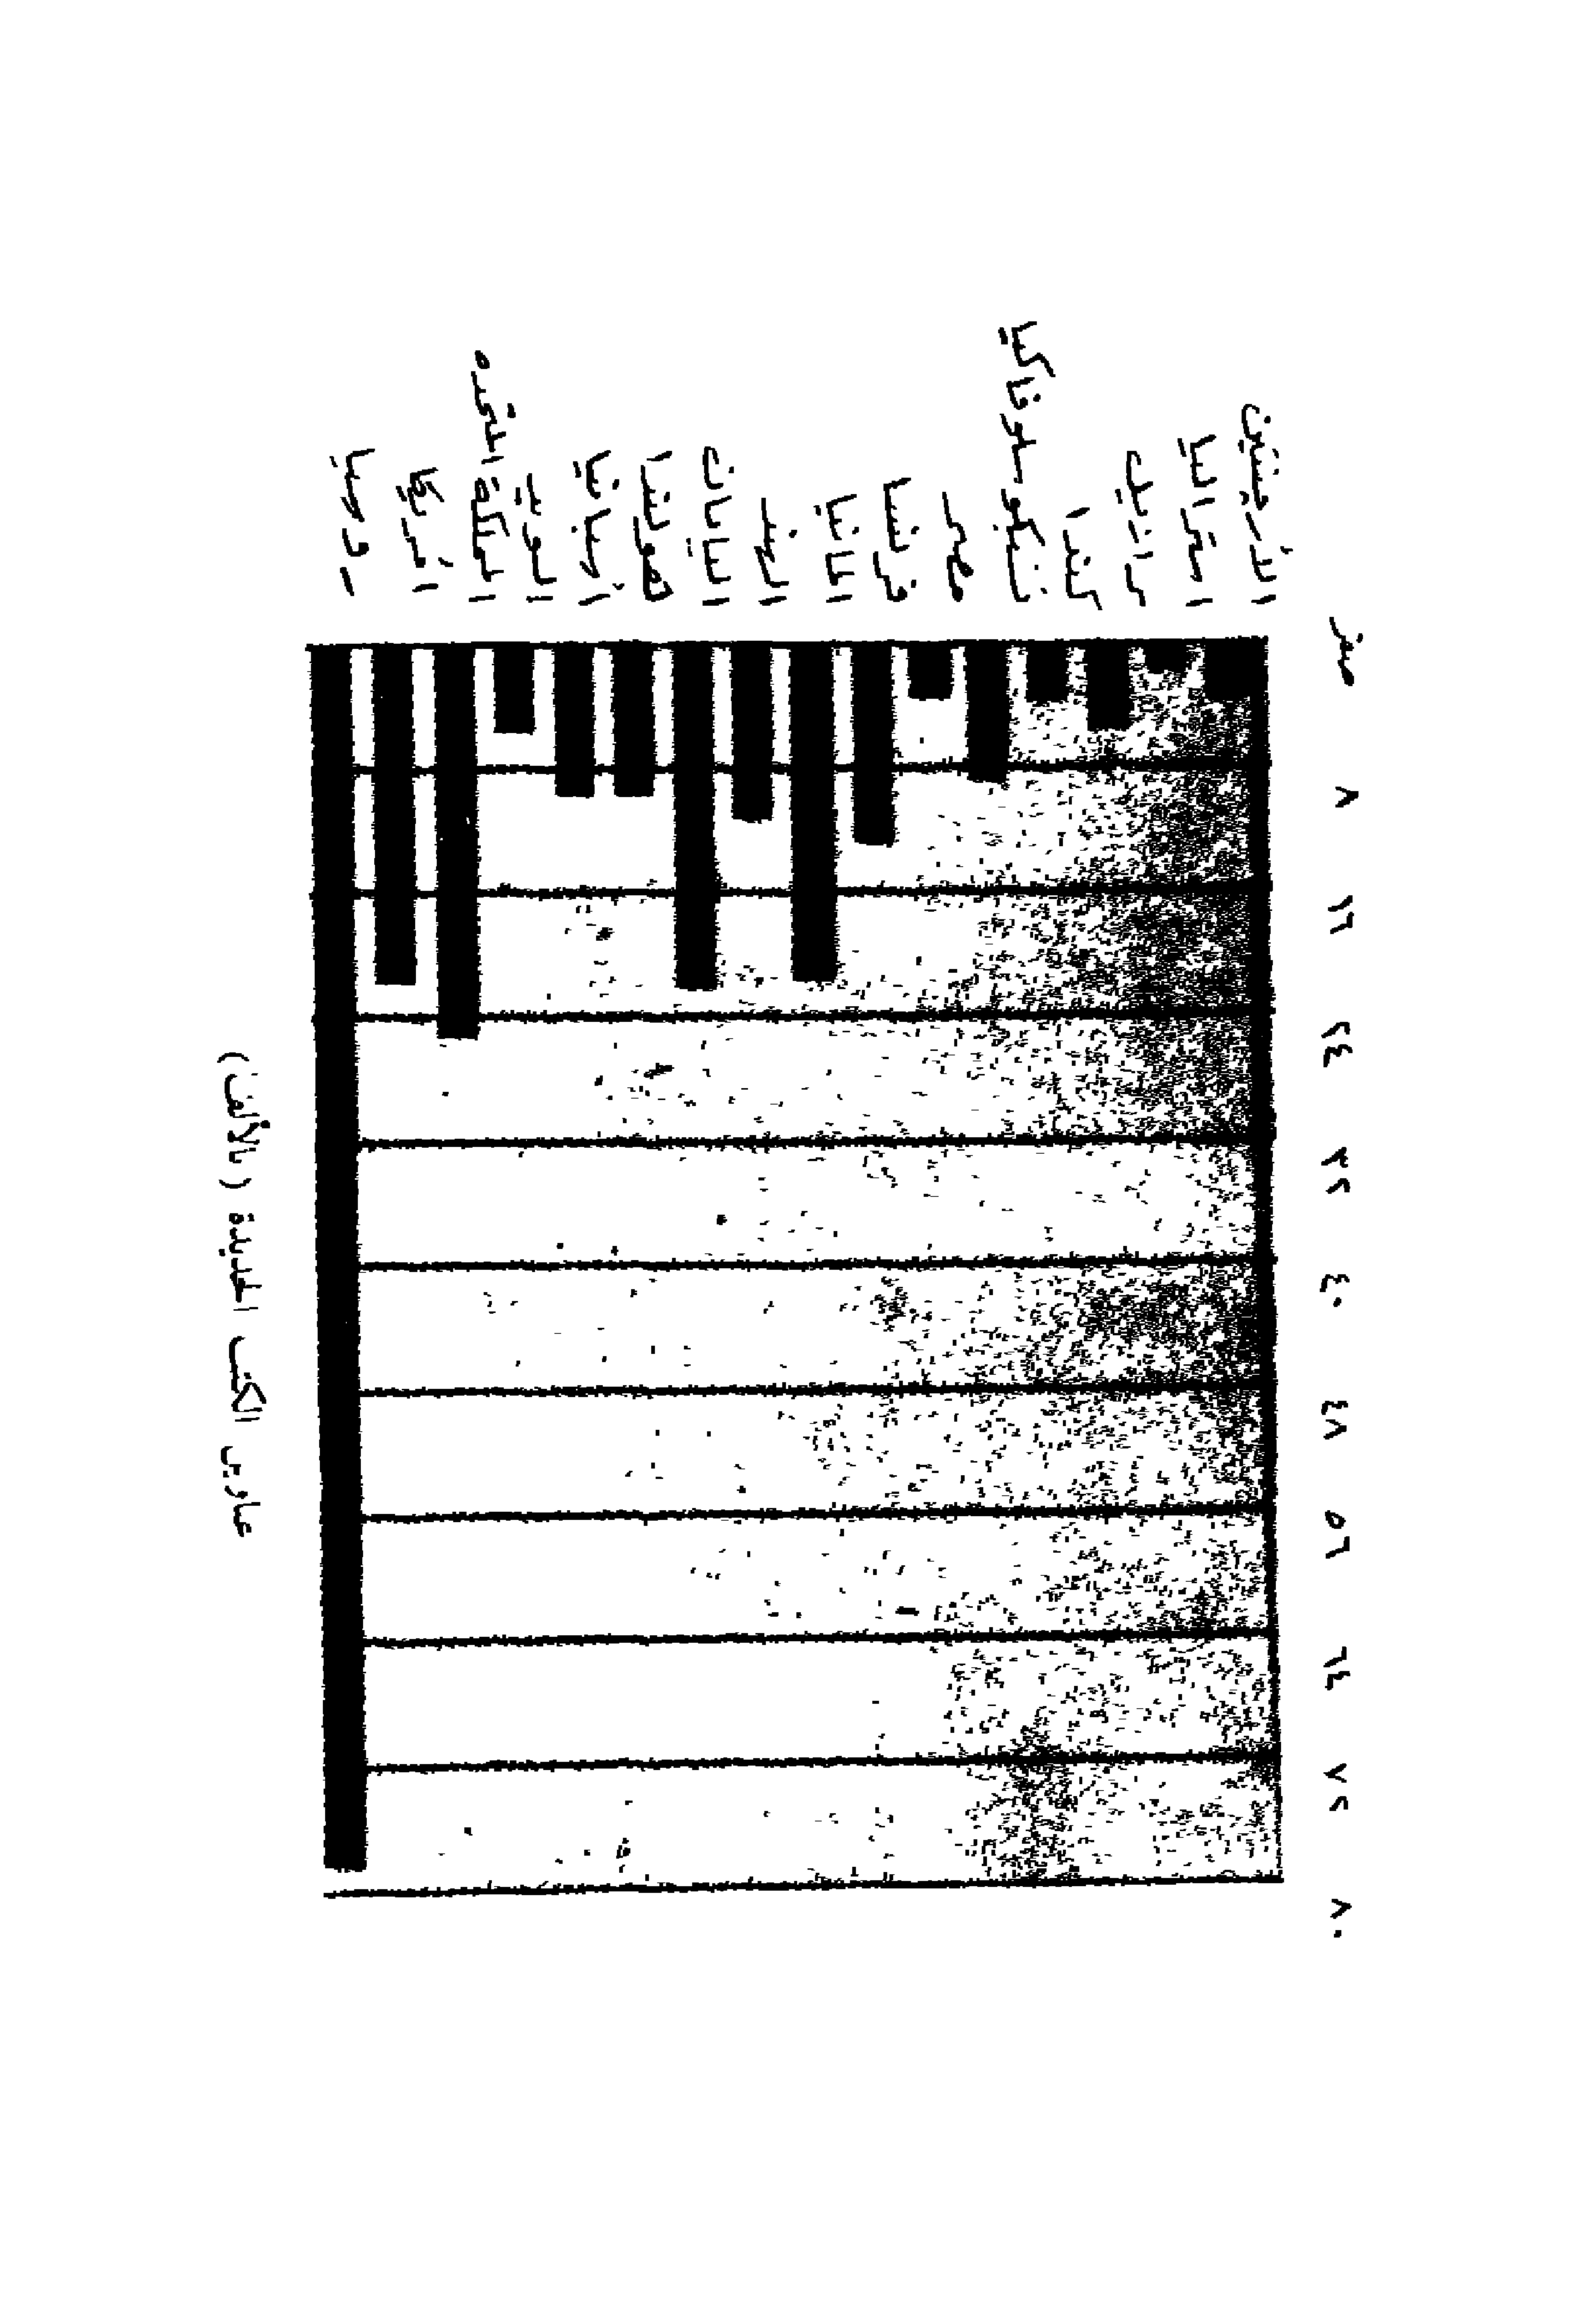 صفر ٨ ١٦ ٢٤ ٣٢ ٤٠ ٤٨ ٥٦ ٦٤ ٧٢ ٨٠
الأرجنتين
استراليا
برازيل
كندا
تشيكوسلوفاكيا
مصر
فرنسا
المانيا
الهند
اليابان
هولندا
أسبانيا
السويد
المملكة المتحده
امريكا
روسيا
عناوين الكتب الحديثة (بالألف)